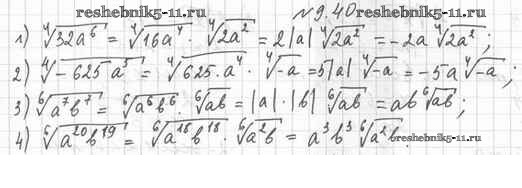 reshebnik5-11.ru № 9.40 reshebnik5-11.ru
1) ⁴√32a⁶ = ⁴√16a⁴ · ⁴√2a² = 2|a| ⁴√2a² = -2a ⁴√2a²;
2) ⁴√-625a⁵ = ⁴√625·a⁴ · ⁴√-a = 5|a| ⁴√-a = -5a ⁴√-a;
3) ⁶√a⁷b⁷ = ⁶√a⁶b⁶ · ⁶√ab = |a|·|b| ⁶√ab = ab ⁶√ab;
4) ⁶√a²⁰b¹⁹ = ⁶√a¹⁸b¹⁸ · ⁶√a²b = a³b³ ⁶√a²b.
reshebnik5-11.ru